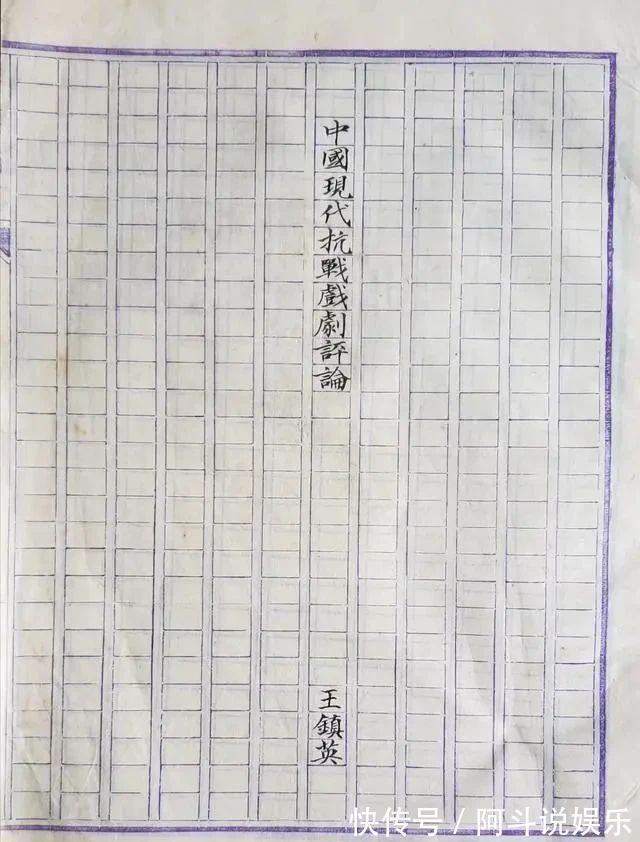 中國現代抗戰戲劇評論
王鎮英
快传号／阿斗说娱乐